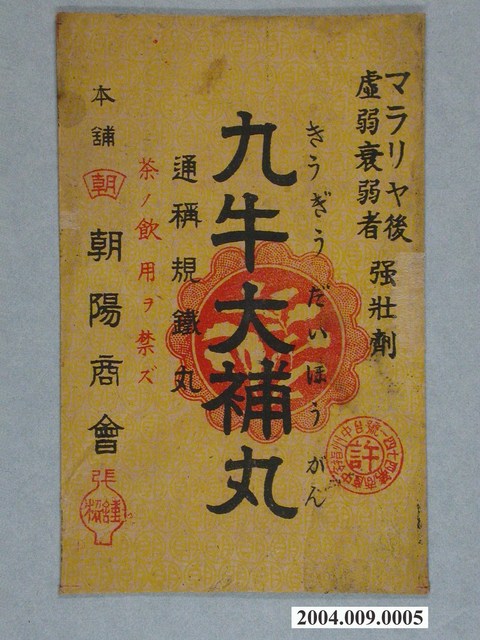 マラリヤ後
虛弱衰弱者
强壯劑
きうぎうだいほうがん
九牛大補丸
通稱規鐵丸
茶ノ飲用ヲ禁ズ
本舖
朝
朝陽商會
張
許
2004.009.0005